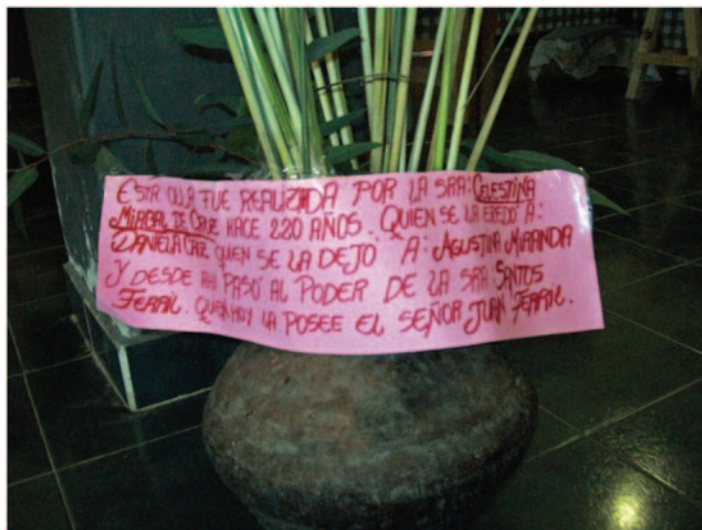 ESTA OLLA FUE REALIZADA POR LA SRA: CELESTINA
DE CRUZ HACE 220 AÑOS. QUIEN SE LA EREDÓ A:
DANIELA CRUZ QUIEN SE LA DEJO A: AGUSTINA MIRANDA
Y DESDE AHI PASÓ AL PODER DE LA SRA: SANTOS
FERRIL. QUIEN HOY LA POSEE EL SEÑOR JUAN FERRIL.